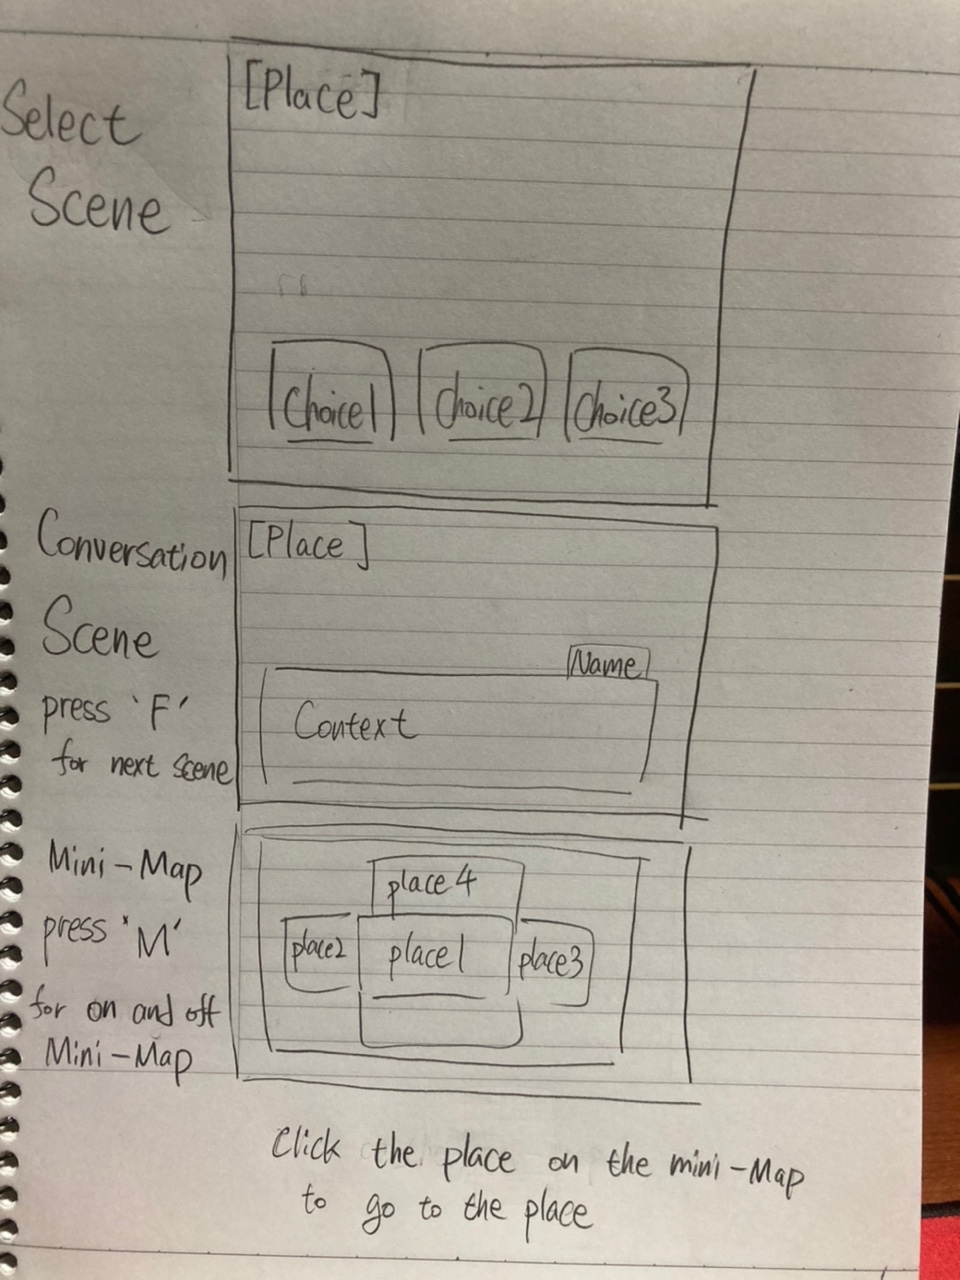 Select
Scene
[Place]
Choice1
Choice2
Choice3
Conversation
Scene
press 'F'
for next scene
[Place]
Name
Context
Mini-Map
press 'M'
for on and off
Mini-Map
place4
place2
place1
place3
Click the place on the mini-Map
to go to the place